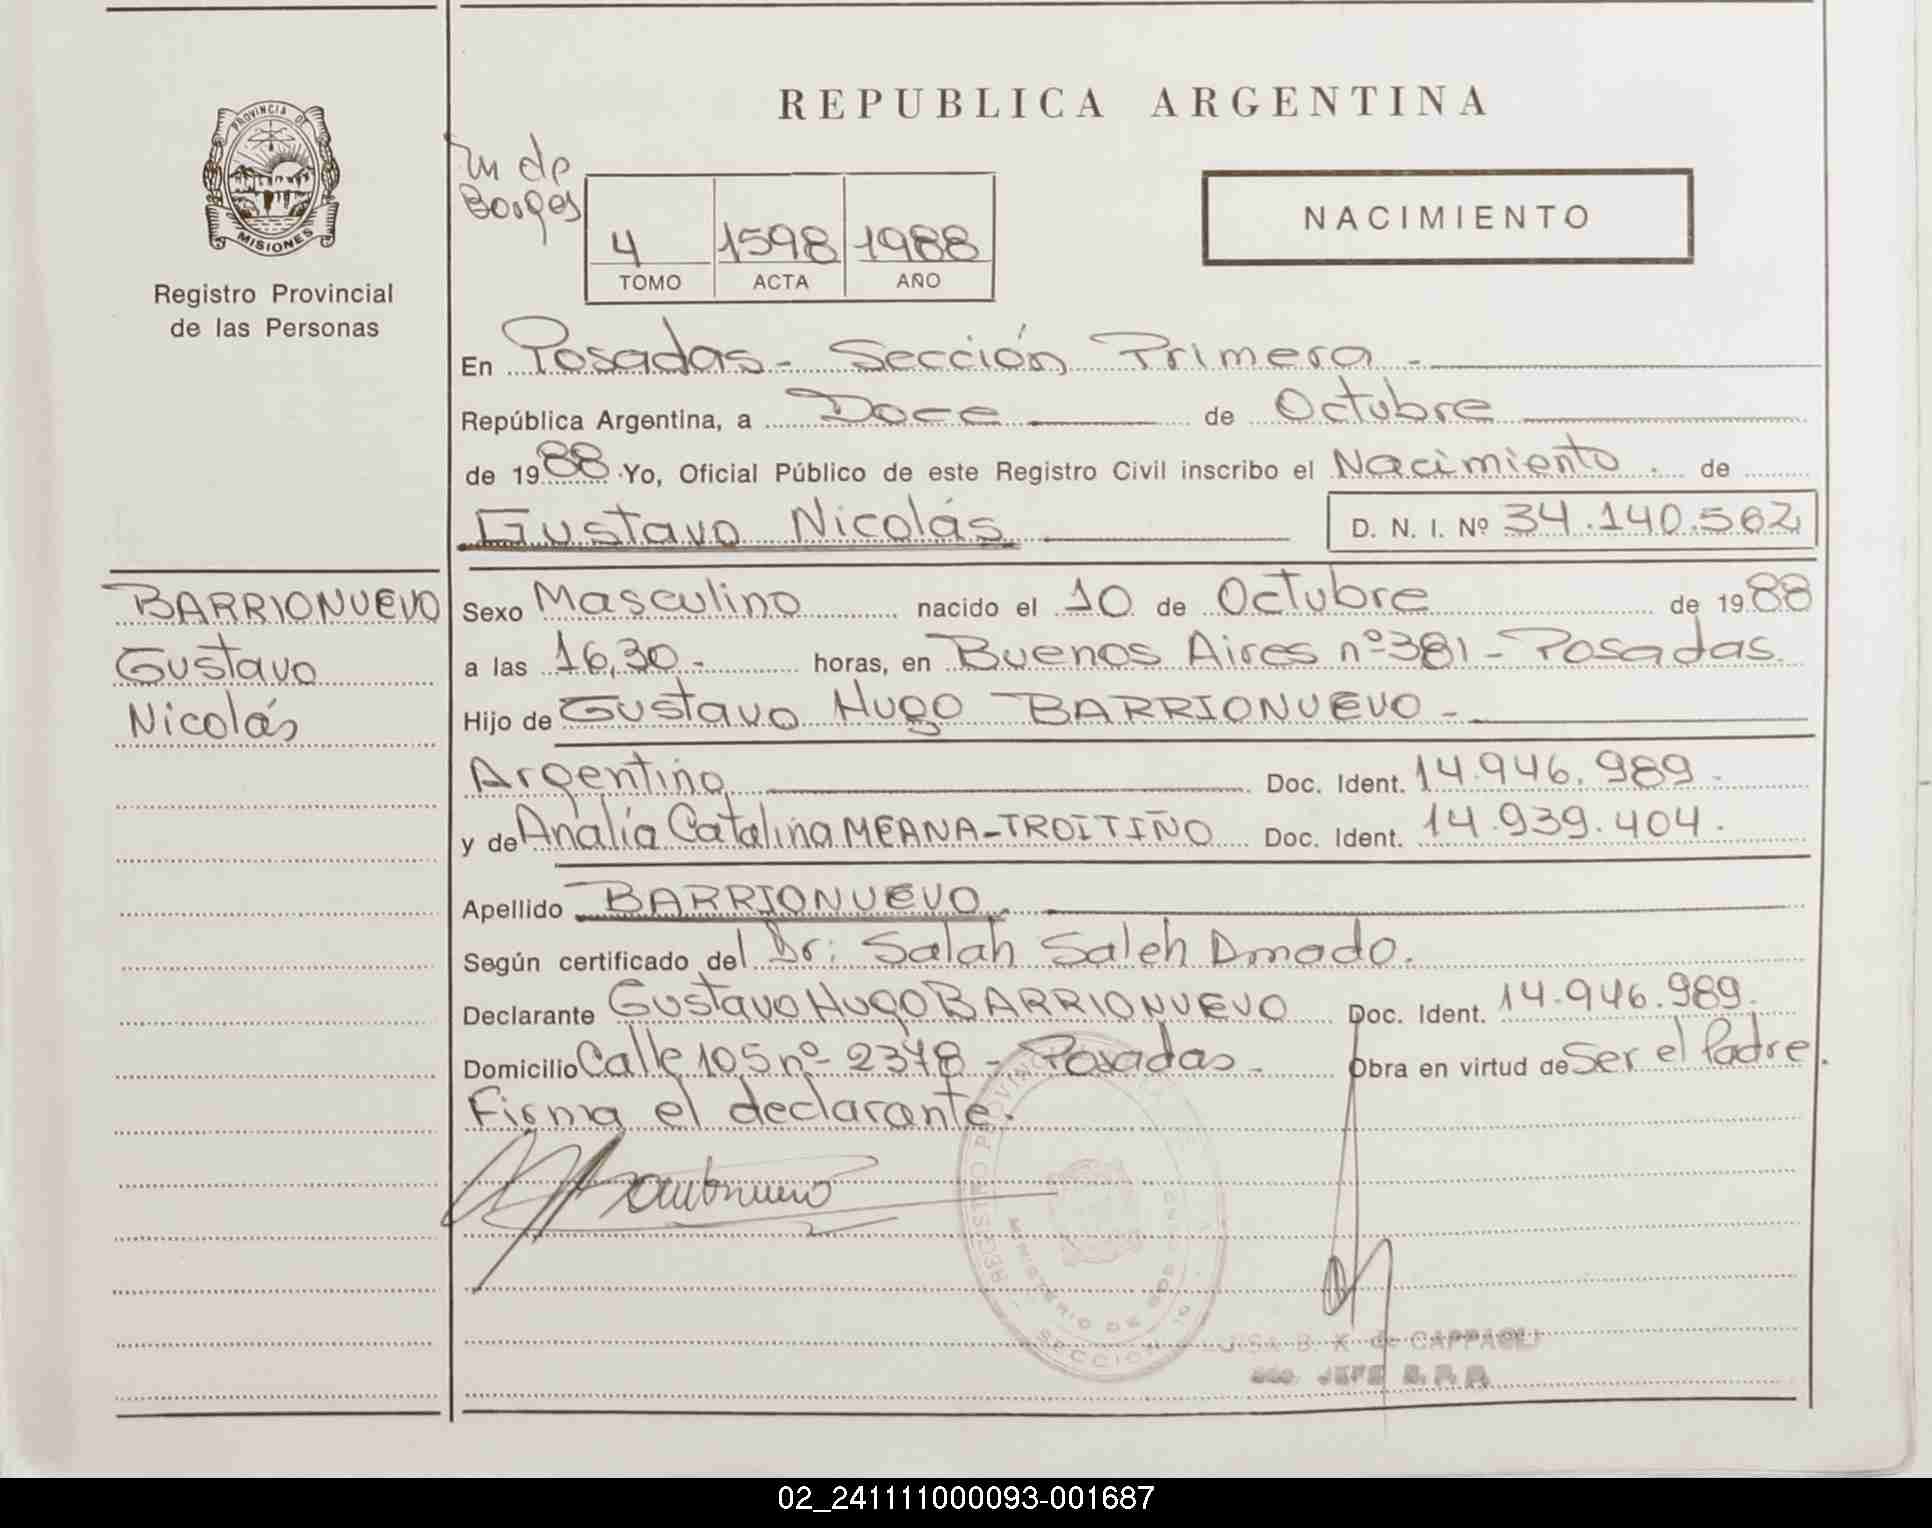 REPUBLICA ARGENTINA
PROVINCIA DE
MISIONES
Registro Provincial
de las Personas
de
Borges
4 1598 1988
TOMO ACTA AÑO
NACIMIENTO
En Posadas - Sección Primera -
República Argentina, a Doce de Octubre
de 1988 Yo, Oficial Público de este Registro Civil inscribo el Nacimiento . de
Gustavo Nicolás D. N. I. Nº 34.140.562
BARRIONUEVO
Gustavo
Nicolás
Sexo Masculino nacido el 10 de Octubre de 1988
a las 16,30 - horas, en Buenos Aires nº 381 - Posadas.
Hijo de Gustavo Hugo BARRIONUEVO -
Argentino Doc. Ident. 14.946.989 -
y de Analía Catalina MEANA-TROITIÑO Doc. Ident. 14.939.404.
Apellido BARRIONUEVO.
Según certificado del Dr: Salah Saleh Amado.
Declarante Gustavo Hugo BARRIONUEVO Doc. Ident. 14.946.989.
Domicilio Calle 105 nº 2378 - Posadas - Obra en virtud de Ser el Padre.
Firma el declarante.
REGISTRO PROVINCIAL
MINISTERIO DE
SECCION
B. K de CAPPAGLI
JEFE
02_241111000093-001687